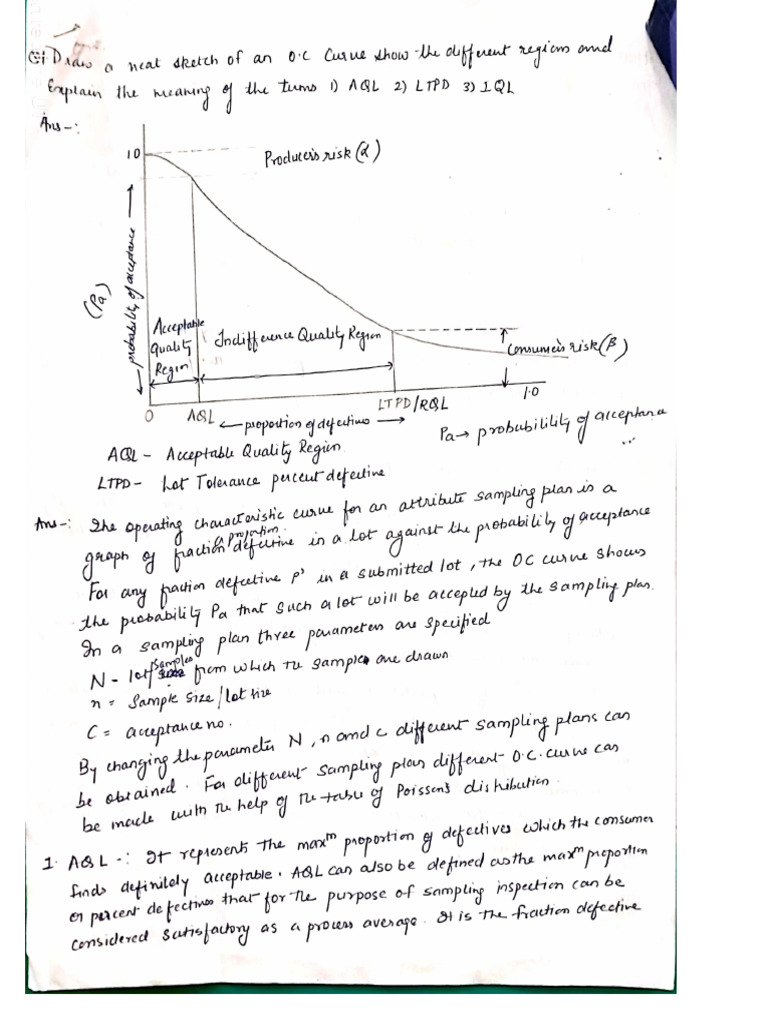 Q1 Draw a neat sketch of an O.C Curve show the different regions and
Explain the meaning of the terms 1) AQL 2) LTPD 3) IQL
Ans -:
1.0
Producer's risk (α)
(Pa)
← probability of acceptance →
Acceptable
Quality
Region
Indifference Quality Region
Consumer's risk (β)
0
AQL
← proportion of defectives →
LTPD/RQL
1.0
Pa → probabilility of acceptance
AQL - Acceptable Quality Region
LTPD - Lot Tolerance percent defective
Ans -: The operating characteristic curve for an attribute sampling plan is a
graph of fraction defective in a lot against the probability of acceptance
or proportion
For any fraction defective p' in a submitted lot, the OC curve shows
the probability Pa that such a lot will be accepted by the sampling plan.
In a sampling plan three parameters are specified
N - lot/samples from which the samples are drawn
n = Sample size/lot size
C = acceptance no.
By changing the parameter N, n and c different sampling plans can
be obtained. For different sampling plan different O.C. curve can
be made with the help of the table of Poisson's distribution.
1. AQL -: It represents the max^m proportion of defectives which the consumer
finds definitely acceptable. AQL can also be defined as the max^m proportion
or percent defectives that for the purpose of sampling inspection can be
considered satisfactory as a process average. It is the fraction defective